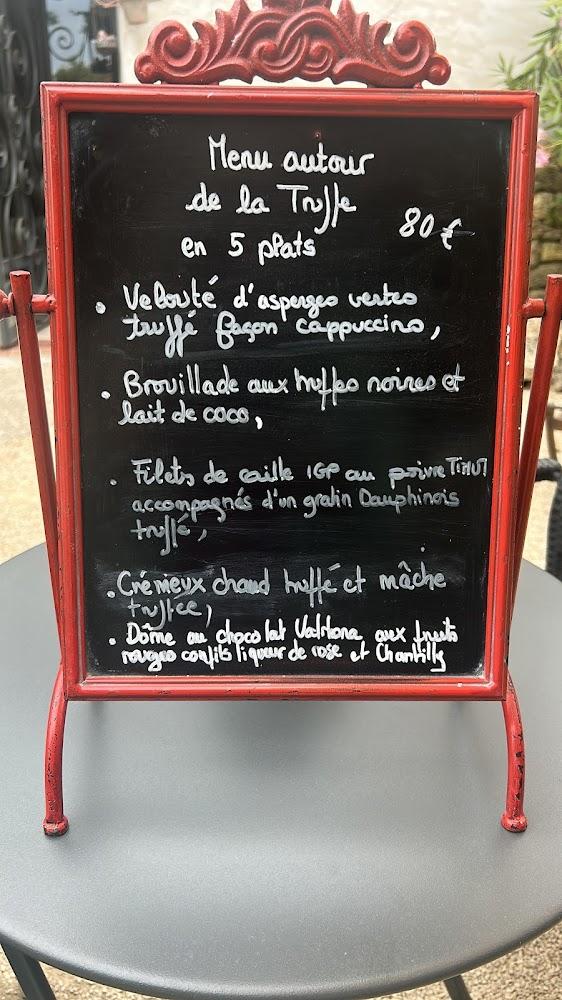 Menu autour
de la Truffe
80 €
en 5 plats
• Velouté d'asperges vertes
truffé façon cappuccino,
• Brouillade aux truffes noires et
lait de coco,
• Filets de caille IGP au poivre TIMUT
accompagnés d'un gratin Dauphinois
truffé,
• Crémeux chaud truffé et mâche
truffée,
• Dôme au chocolat Valrhona aux fruits
rouges confits liqueur de rose et Chantilly